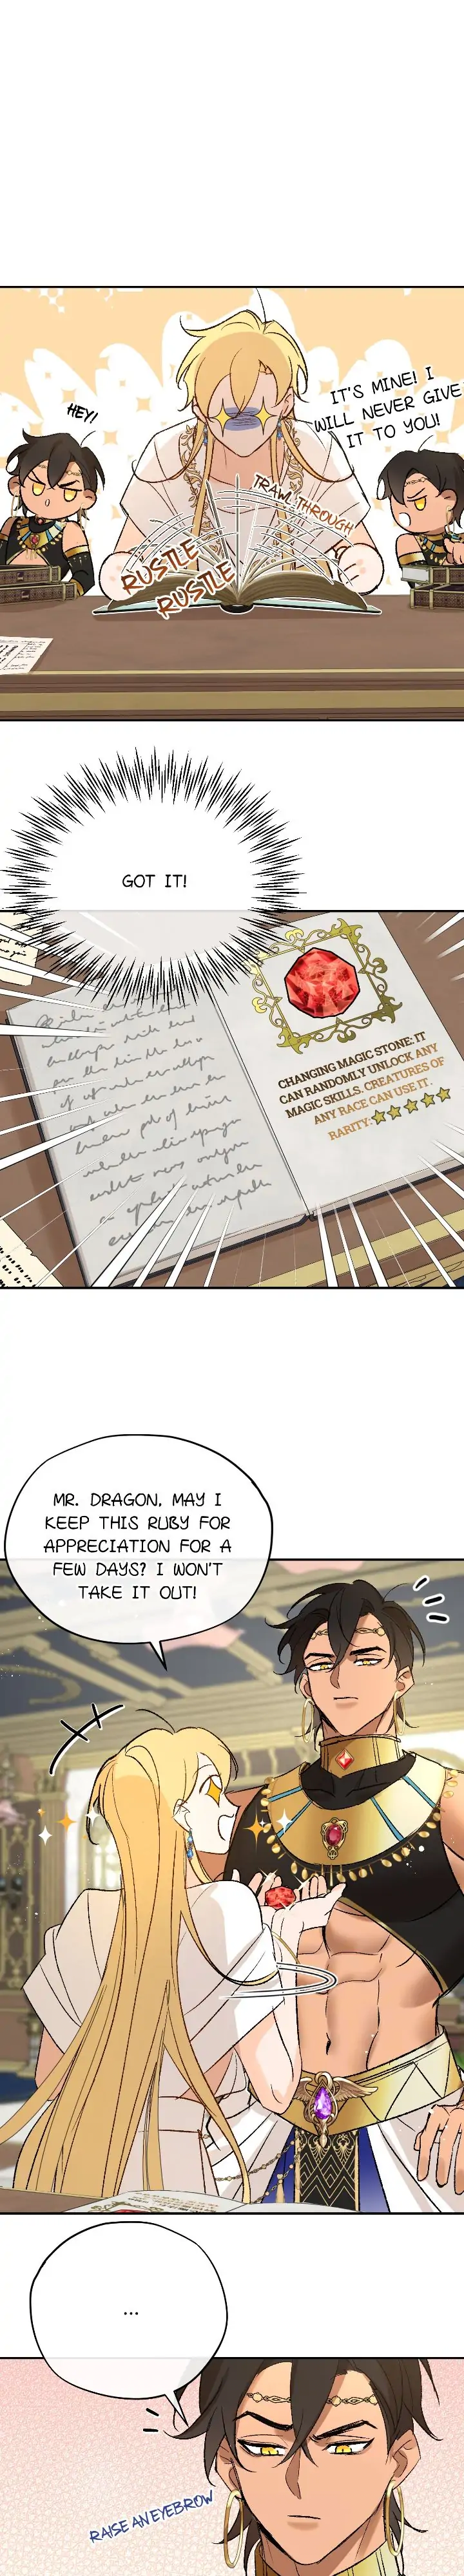 HEY!
IT'S MINE! I
WILL NEVER GIVE
IT TO YOU!
TRAWL THROUGH
RUSTLE
RUSTLE
GOT IT!
CHANGING MAGIC STONE: IT
CAN RANDOMLY UNLOCK ANY
MAGIC SKILLS. CREATURES OF
ANY RACE CAN USE IT.
RARITY:
MR. DRAGON, MAY I
KEEP THIS RUBY FOR
APPRECIATION FOR A
FEW DAYS? I WON'T
TAKE IT OUT!
...
RAISE AN EYEBROW